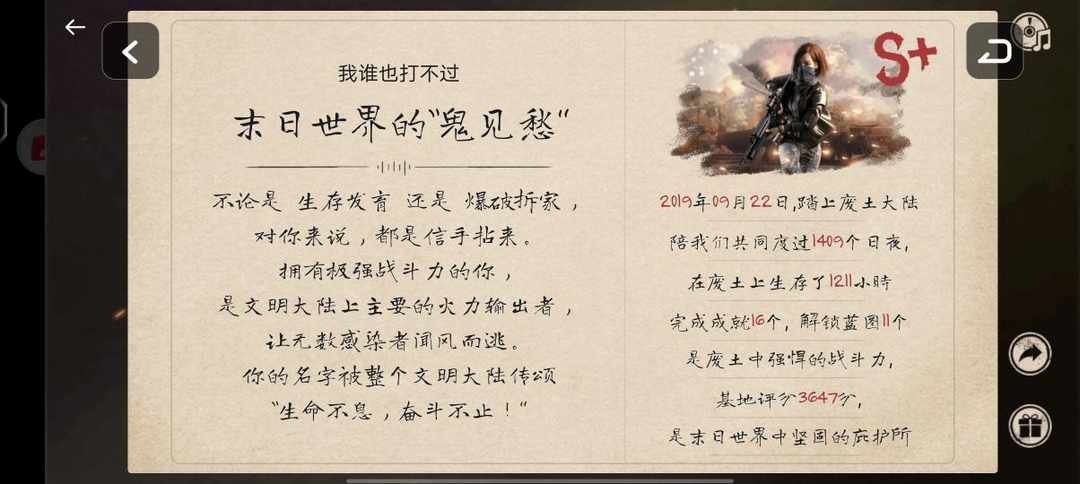 我谁也打不过
末日世界的"鬼见愁"
不论是 生存发育 还是 爆破拆家，
对你来说，都是信手拈来。
拥有极强战斗力的你，
是文明大陆上主要的火力输出者，
让无数感染者闻风而逃。
你的名字被整个文明大陆传颂
"生命不息，奋斗不止！"
S+
2019年09月22日,踏上废土大陆
陪我们共同度过1409个日夜,
在废土上生存了1211小時
完成成就16个, 解锁蓝图11个
是废土中强悍的战斗力,
基地评分3647分,
是末日世界中坚固的庇护所